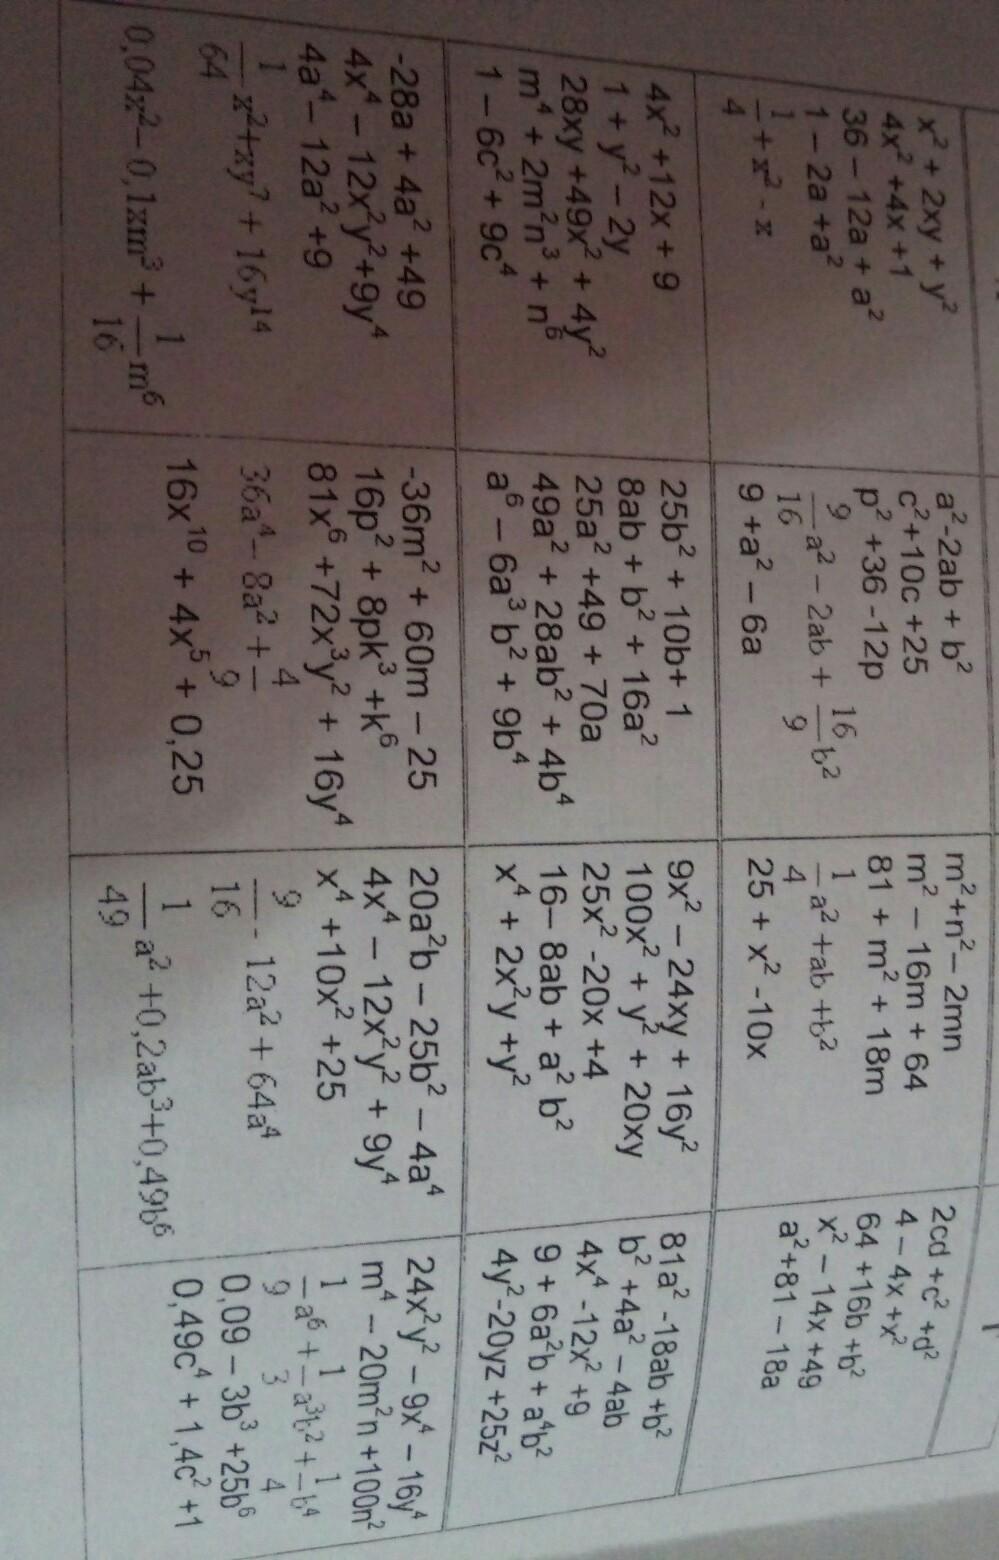 x² + 2xy + y²
4x² +4x +1
36 – 12a + a²
1 – 2a +a²
1/4 + x² - x
a²-2ab + b²
c²+10c +25
p² +36 -12p
9/16 a² – 2ab + 16/9 b²
9 +a² – 6a
m²+n²– 2mn
m² – 16m + 64
81 + m² + 18m
1/4 a² +ab +b²
25 + x² -10x
2cd +c² +d²
4 – 4x +x²
64 +16b +b²
x² – 14x +49
a²+81 – 18a
4x² +12x + 9
1 + y² – 2y
28xy +49x² + 4y²
m⁴ + 2m²n³ + n⁶
1 – 6c² + 9c⁴
25b² + 10b+ 1
8ab + b² + 16a²
25a² +49 + 70a
49a² + 28ab² + 4b⁴
a⁶ – 6a³ b² + 9b⁴
9x² – 24xy + 16y²
100x² + y² + 20xy
25x² -20x +4
16– 8ab + a² b²
x⁴ + 2x²y +y²
81a² -18ab +b²
b² +4a² – 4ab
4x⁴ -12x² +9
9 + 6a²b + a⁴b²
4y²-20yz +25z²
-28a + 4a² +49
4x⁴ – 12x²y²+9y⁴
4a⁴ – 12a² +9
1/64 x²+xy⁷ + 16y¹⁴
0,04x²– 0,1xm³ + 1/16 m⁶
-36m² + 60m – 25
16p² + 8pk³ +k⁶
81x⁶ +72x³y² + 16y⁴
36a⁴ – 8a² + 4/9
16x¹⁰ + 4x⁵ + 0,25
20a²b – 25b² – 4a⁴
4x⁴ – 12x²y² + 9y⁴
x⁴ +10x² +25
9/16 - 12a² + 64a⁴
1/49 a² +0,2ab³+0,49b⁶
24x²y² – 9x⁴ – 16y⁴
m⁴ – 20m²n +100n²
1/9 a⁶ + 1/3 a³b² + 1/4 b⁴
0,09 – 3b³ +25b⁶
0,49c⁴ + 1,4c² +1